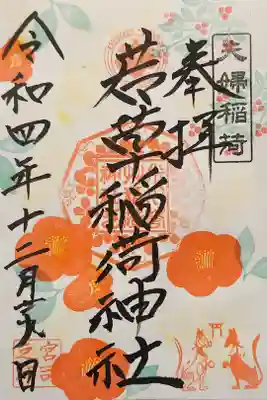 夫婦稲荷
奉拝
若草稲荷神社
令和四年十二月 日
宮司